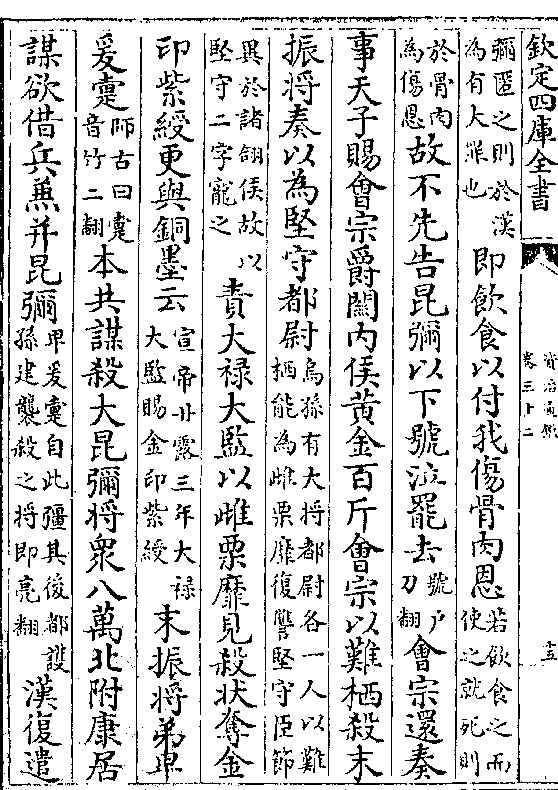 欽定四庫全書
資治通鑑
卷三十二
十五
彌匿之則於漢
為有大罪也
即飲食以付我傷骨肉恩
若飲食之而
使之就死則
於骨肉
為傷恩
故不先告昆彌以下號泣罷去
號戶
刀翻
會宗還奏
事天子賜會宗爵關内侯黄金百斤會宗以難栖殺末
振将奏以為堅守都尉
烏孫有大将都尉各一人以難
栖能為雌栗靡復讐堅守臣節
異於諸翖侯故以
堅守二字寵之
責大禄大監以雌栗靡見殺状奪金
印紫綬更與銅墨云
宣帝甘露三年大禄
大監賜金印紫綬
末振将弟卑
爰疐
師古曰疐
音竹二翻
本共謀殺大昆彌将衆八萬北附康居
謀欲借兵兼并昆彌
卑爰疐自此彊其後都護
孫建襲殺之将即亮翻
漢復遣